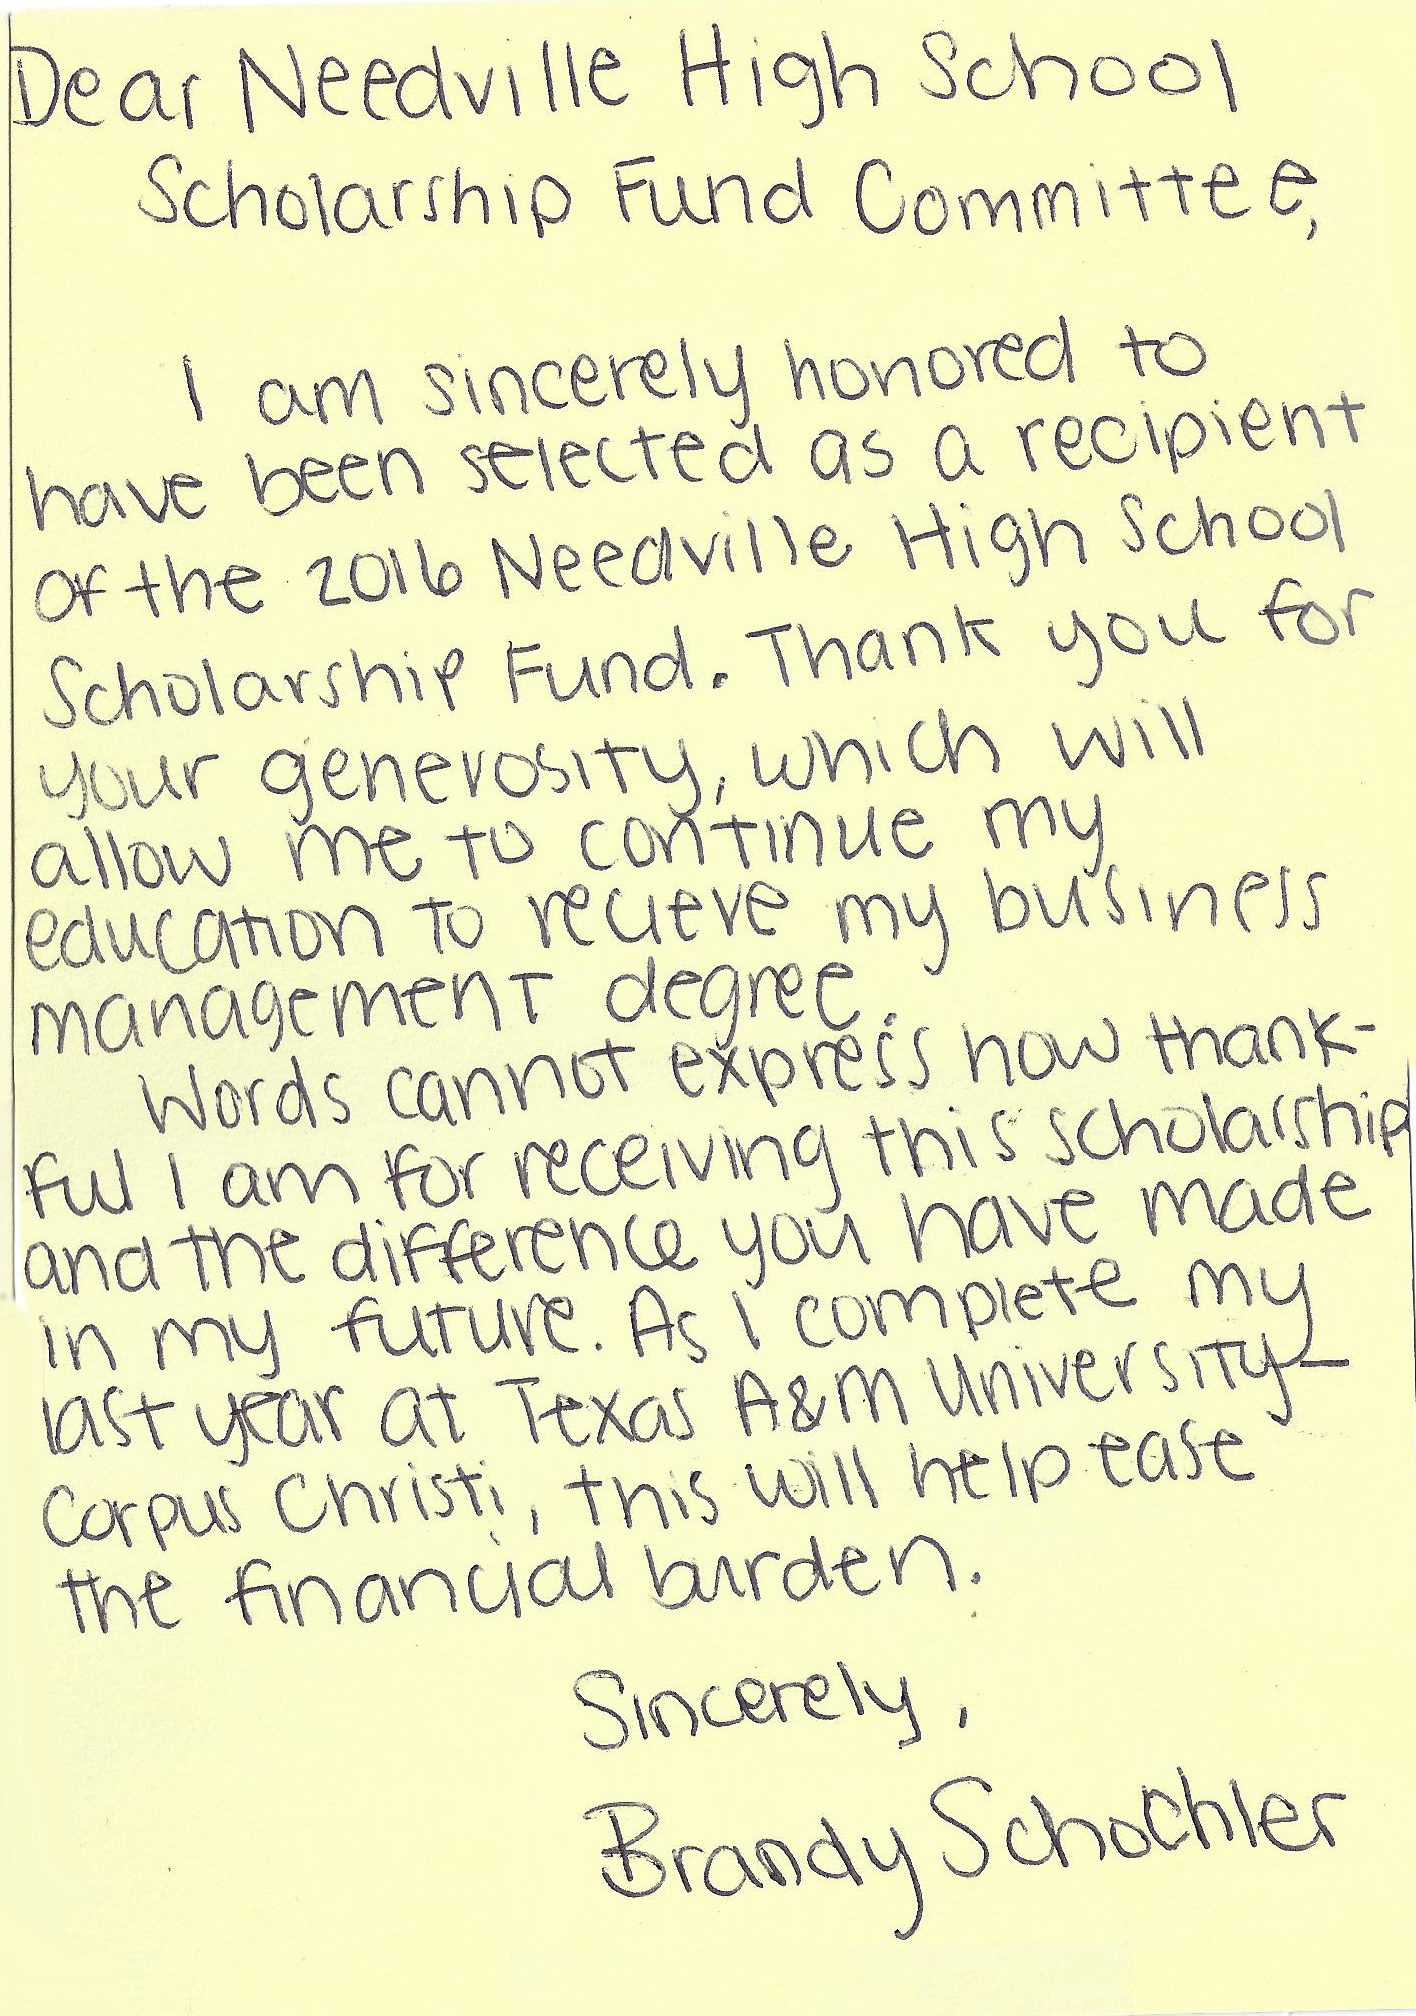 Dear Needville High School
Scholarship Fund Committee,
I am sincerely honored to
have been selected as a recipient
of the 2016 Needville High School
Scholarship Fund. Thank you for
your generosity, which will
allow me to continue my
education to recieve my business
management degree.
Words cannot express how thank-
ful I am for receiving this scholarship
and the difference you have made
in my future. As I complete my
last year at Texas A&M University-
Corpus Christi, this will help ease
the financial burden.
Sincerely,
Brandy Schochler